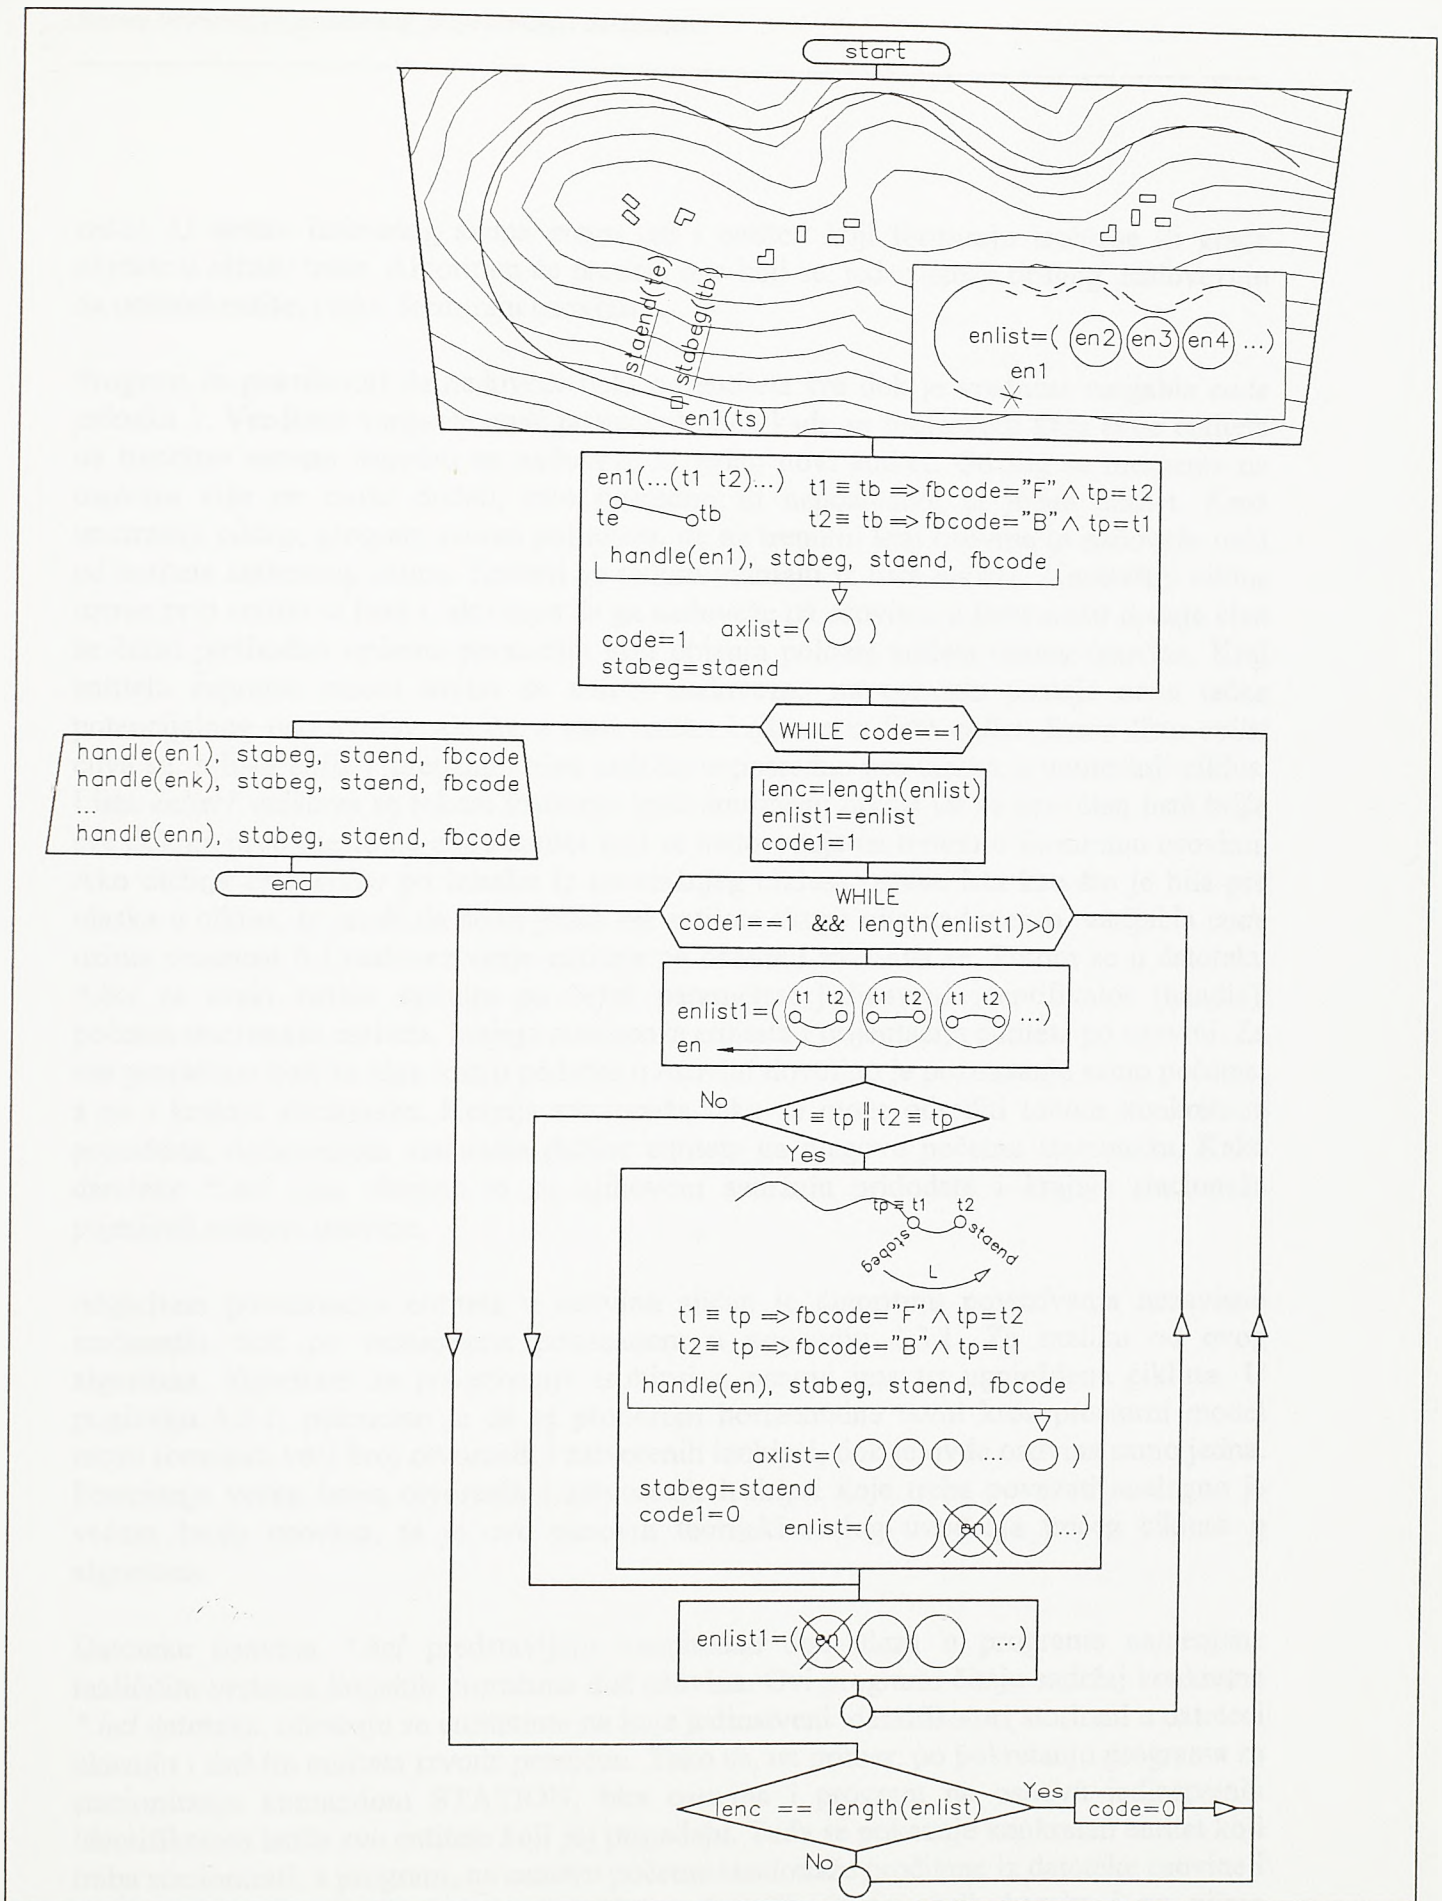 start
staend(te)
stabeg(tb)
en1(ts)
enlist=( en2 en3 en4 ...)
en1
en1(...(t1 t2)...)
t1 ≡ tb => fbcode="F" ∧ tp=t2
te tb
t2 ≡ tb => fbcode="B" ∧ tp=t1
handle(en1), stabeg, staend, fbcode
axlist=( )
code=1
stabeg=staend
WHILE code==1
handle(en1), stabeg, staend, fbcode
handle(enk), stabeg, staend, fbcode
...
handle(enn), stabeg, staend, fbcode
end
lenc=length(enlist)
enlist1=enlist
code1=1
WHILE
code1==1 && length(enlist1)>0
t1 t2 t1 t2 t1 t2
enlist1=( ...)
en
No
t1 ≡ tp || t2 ≡ tp
Yes
tp ≡ t1 t2
stabeg staend
L
t1 ≡ tp => fbcode="F" ∧ tp=t2
t2 ≡ tp => fbcode="B" ∧ tp=t1
handle(en), stabeg, staend, fbcode
axlist=( ... )
stabeg=staend
code1=0
enlist=( en ...)
enlist1=( en ...)
lenc == length(enlist)
Yes
code=0
No